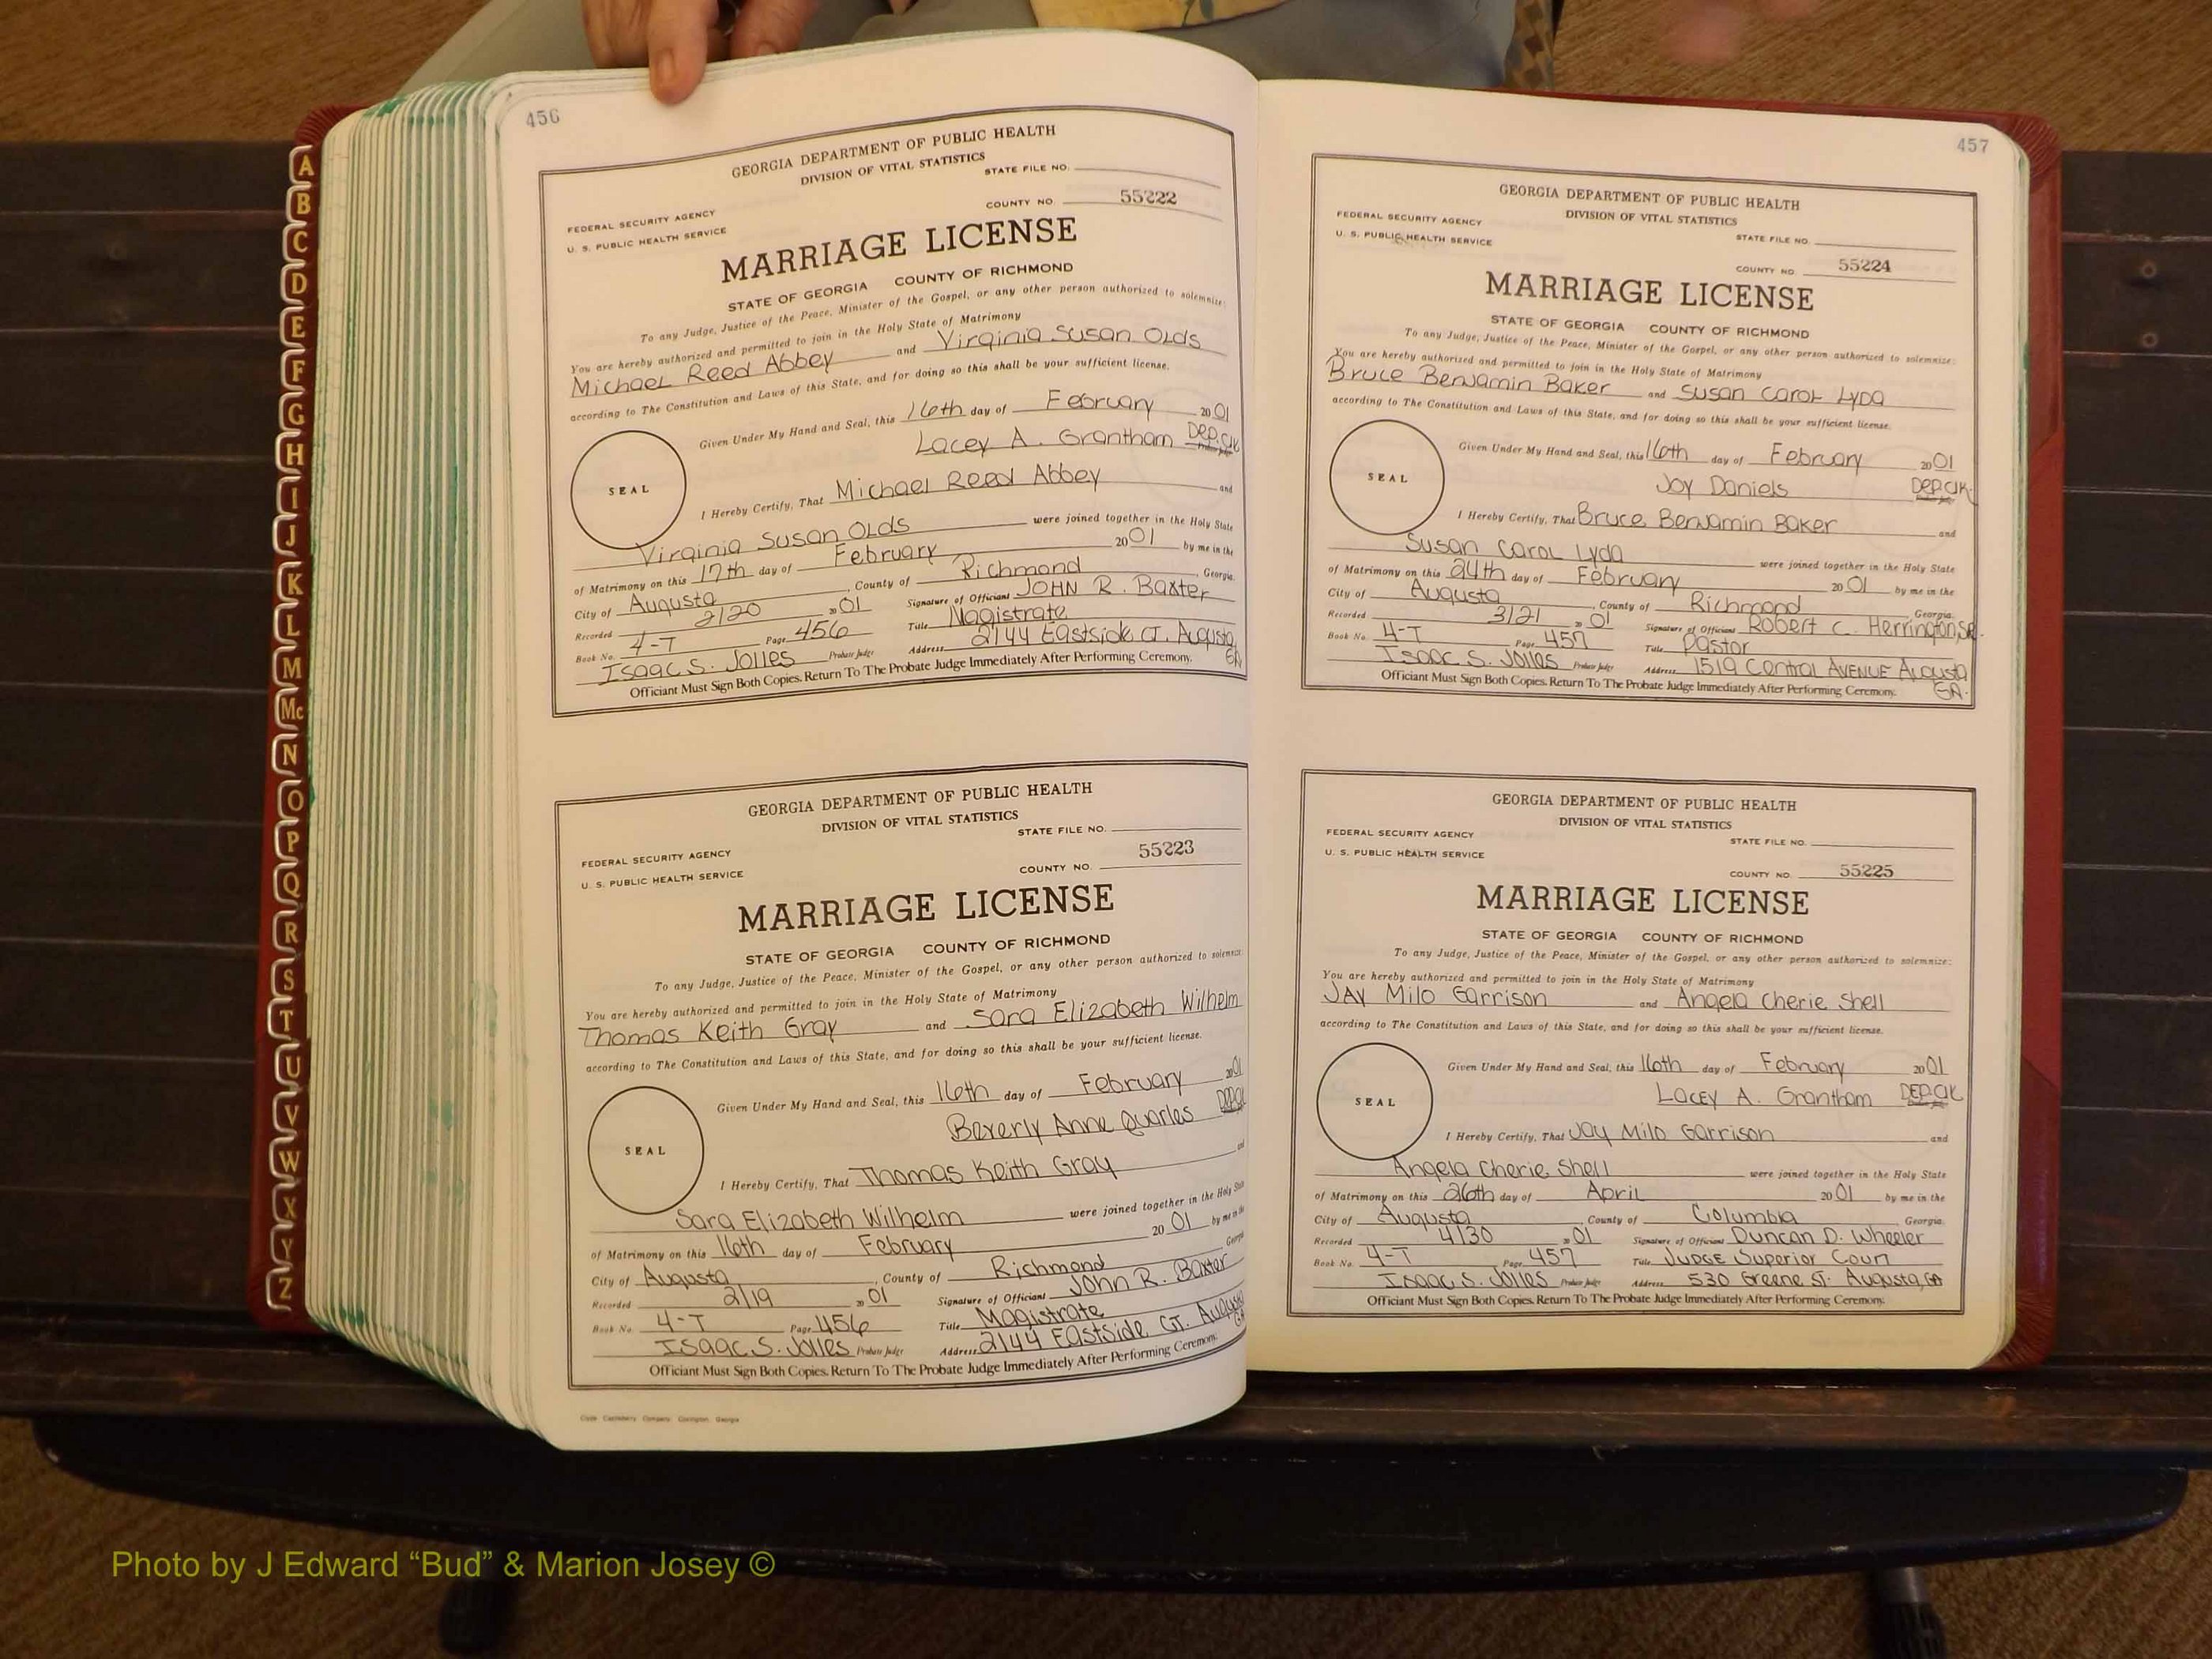 456
GEORGIA DEPARTMENT OF PUBLIC HEALTH
DIVISION OF VITAL STATISTICS
STATE FILE NO.
FEDERAL SECURITY AGENCY
U. S. PUBLIC HEALTH SERVICE
COUNTY NO. 55222
MARRIAGE LICENSE
STATE OF GEORGIA COUNTY OF RICHMOND
To any Judge, Justice of the Peace, Minister of the Gospel, or any other person authorized to solemnize:
You are hereby authorized and permitted to join in the Holy State of Matrimony
Michael Reed Abbey and Virginia Susan Olds
according to The Constitution and Laws of this State, and for doing so this shall be your sufficient license.
Given Under My Hand and Seal, this 16th day of February 2001
Lacey A. Grantham Dep. Clk
SEAL
I Hereby Certify, That Michael Reed Abbey and
Virginia Susan Olds were joined together in the Holy State
of Matrimony on this 17th day of February 2001 by me in the
City of Augusta, County of Richmond, Georgia.
Recorded 2/20 2001 Signature of Officiant JOHN R. Baxter
Book No. 4-T Page 456 Title Magistrate
Isaac S. Jolles Probate Judge Address 2144 Eastside Ct. Augusta, GA
Officiant Must Sign Both Copies. Return To The Probate Judge Immediately After Performing Ceremony.
GEORGIA DEPARTMENT OF PUBLIC HEALTH
DIVISION OF VITAL STATISTICS
STATE FILE NO.
FEDERAL SECURITY AGENCY
U. S. PUBLIC HEALTH SERVICE
COUNTY NO. 55223
MARRIAGE LICENSE
STATE OF GEORGIA COUNTY OF RICHMOND
To any Judge, Justice of the Peace, Minister of the Gospel, or any other person authorized to solemnize:
You are hereby authorized and permitted to join in the Holy State of Matrimony
Thomas Keith Gray and Sara Elizabeth Wilhelm
according to The Constitution and Laws of this State, and for doing so this shall be your sufficient license.
Given Under My Hand and Seal, this 16th day of February 2001
Beverly Anne Quarles
SEAL
I Hereby Certify, That Thomas Keith Gray and
Sara Elizabeth Wilhelm were joined together in the Holy State
of Matrimony on this 16th day of February 2001 by me in the
City of Augusta, County of Richmond Georgia
Recorded 2/19 2001 Signature of Officiant John R. Baxter
Book No. 4-T Page 456 Title Magistrate
Isaac S. Jolles Probate Judge Address 2144 Eastside Ct. Augusta GA
Officiant Must Sign Both Copies. Return To The Probate Judge Immediately After Performing Ceremony.
457
GEORGIA DEPARTMENT OF PUBLIC HEALTH
DIVISION OF VITAL STATISTICS
FEDERAL SECURITY AGENCY
U. S. PUBLIC HEALTH SERVICE
STATE FILE NO.
COUNTY NO. 55224
MARRIAGE LICENSE
STATE OF GEORGIA COUNTY OF RICHMOND
To any Judge, Justice of the Peace, Minister of the Gospel, or any other person authorized to solemnize:
You are hereby authorized and permitted to join in the Holy State of Matrimony
Bruce Benjamin Baker and Susan Carol Lyda
according to The Constitution and Laws of this State, and for doing so this shall be your sufficient license.
Given Under My Hand and Seal, this 16th day of February 2001
Joy Daniels Dep. Clk.
SEAL
I Hereby Certify, That Bruce Benjamin Baker and
Susan Carol Lyda were joined together in the Holy State
of Matrimony on this 24th day of February 2001 by me in the
City of Augusta, County of Richmond Georgia.
Recorded 3/21 2001 Signature of Officiant Robert C. Herrington, SR.
Book No. 4-T Page 457 Title Pastor
Isaac S. Jolles Probate Judge Address 1519 Central AVENUE Augusta GA.
Officiant Must Sign Both Copies. Return To The Probate Judge Immediately After Performing Ceremony.
GEORGIA DEPARTMENT OF PUBLIC HEALTH
DIVISION OF VITAL STATISTICS
FEDERAL SECURITY AGENCY
U. S. PUBLIC HEALTH SERVICE
STATE FILE NO.
COUNTY NO. 55225
MARRIAGE LICENSE
STATE OF GEORGIA COUNTY OF RICHMOND
To any Judge, Justice of the Peace, Minister of the Gospel, or any other person authorized to solemnize:
You are hereby authorized and permitted to join in the Holy State of Matrimony
JAY Milo Garrison and Angela Cherie Shell
according to The Constitution and Laws of this State, and for doing so this shall be your sufficient license.
Given Under My Hand and Seal, this 16th day of February 2001
Lacey A. Grantham DEP. Clk
SEAL
I Hereby Certify, That Jay Milo Garrison and
Angela Cherie Shell were joined together in the Holy State
of Matrimony on this 26th day of April 2001 by me in the
City of Augusta, County of Columbia Georgia.
Recorded 4/30 2001 Signature of Officiant Duncan D. Wheeler
Book No. 4-T Page 457 Title JUDGE Superior Court
Isaac S. Jolles Probate Judge Address 530 Greene St. Augusta, GA
Officiant Must Sign Both Copies. Return To The Probate Judge Immediately After Performing Ceremony.
A
B
C
D
E
F
G
H
I
J
K
L
M
Mc
N
O
P
Q
R
S
T
U
V
W
X
Y
Z
Photo by J Edward “Bud” & Marion Josey ©